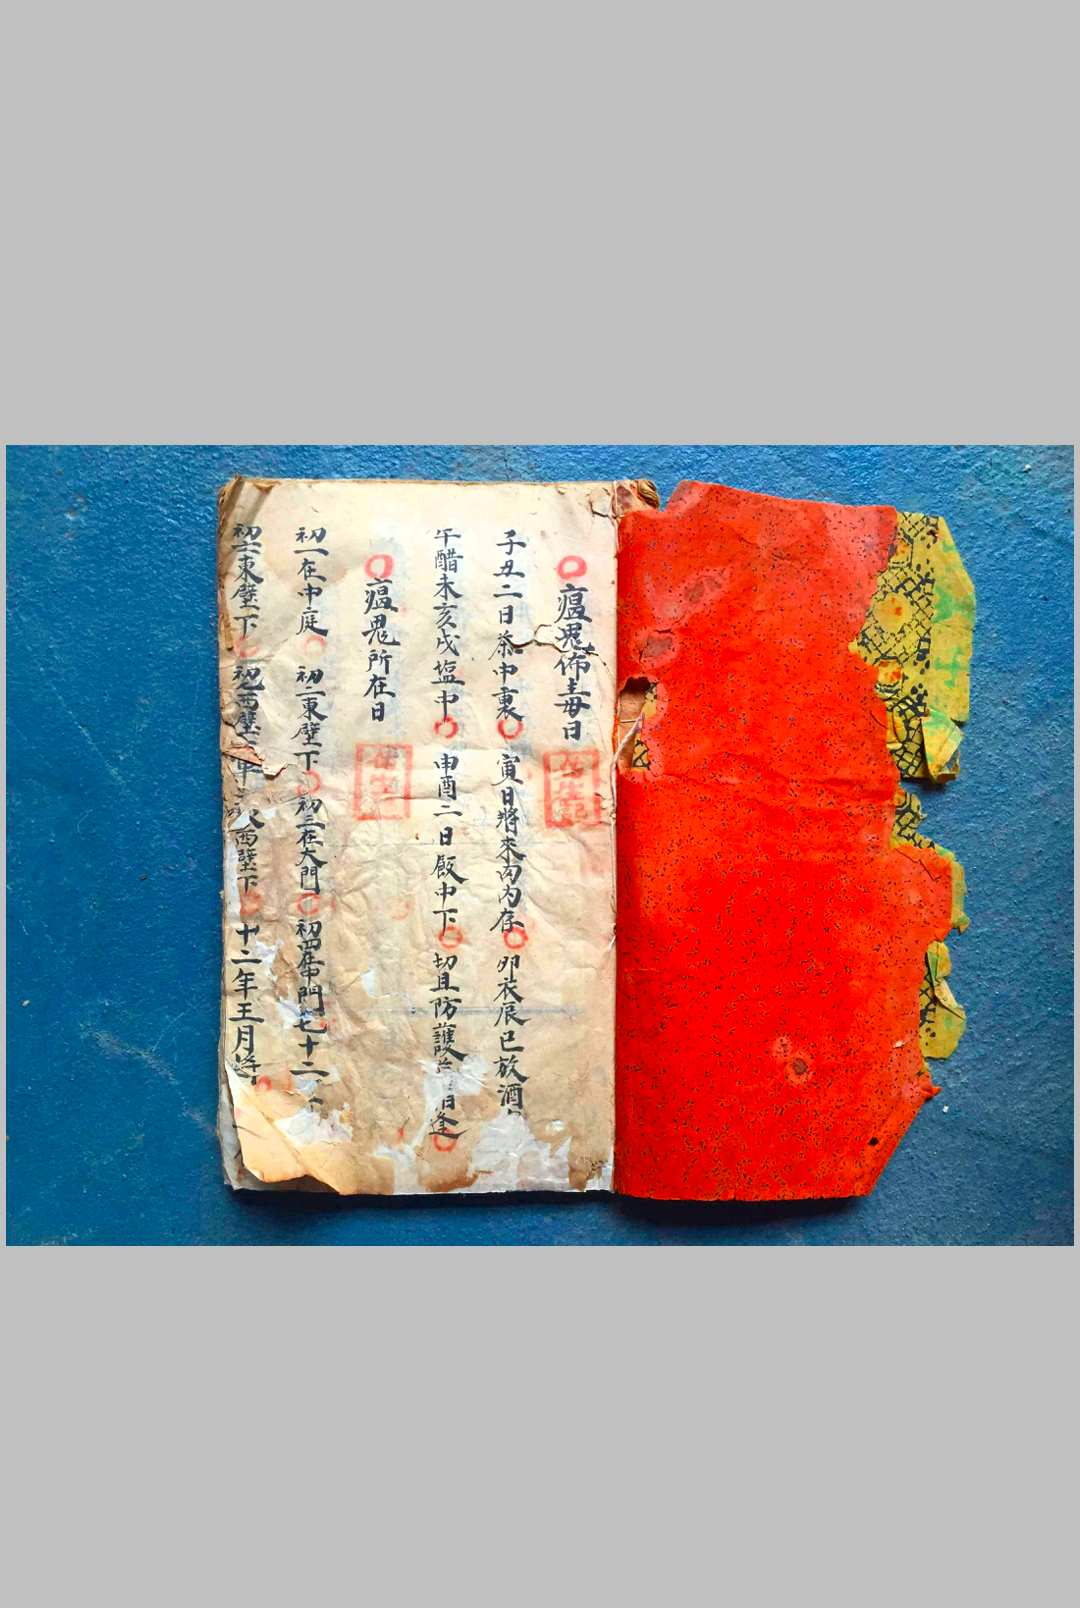 瘟鬼佈毒日
子丑二日茶中裏 寅日將來肉内存 卯衣辰巳放酒
午醋未亥戌塩中 申酉二日飯中下 切且防護 日逢
瘟鬼所在日
初一在中庭 初二東壁下 初三在大門 初四在中門 七十二
初 東壁下 初 西壁 西壁下 十二年五月